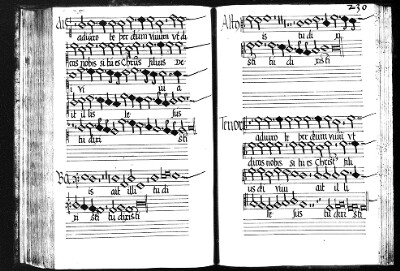 adiuro te per deum vivum vt di
cas nobis si tu es Christus filius De
i vi vi a
it il lis Ie sus
tu dixi sti
Ba
is ait illi tu di
xi sti tu dixisti
230
Alto
is tu di xi
sti tu di xisti
Tenor
adiuro te per deum vivum vt
dicas nobis si tu es Christ fili
us dei vivi ait il li
Ie sus tu dixi sti